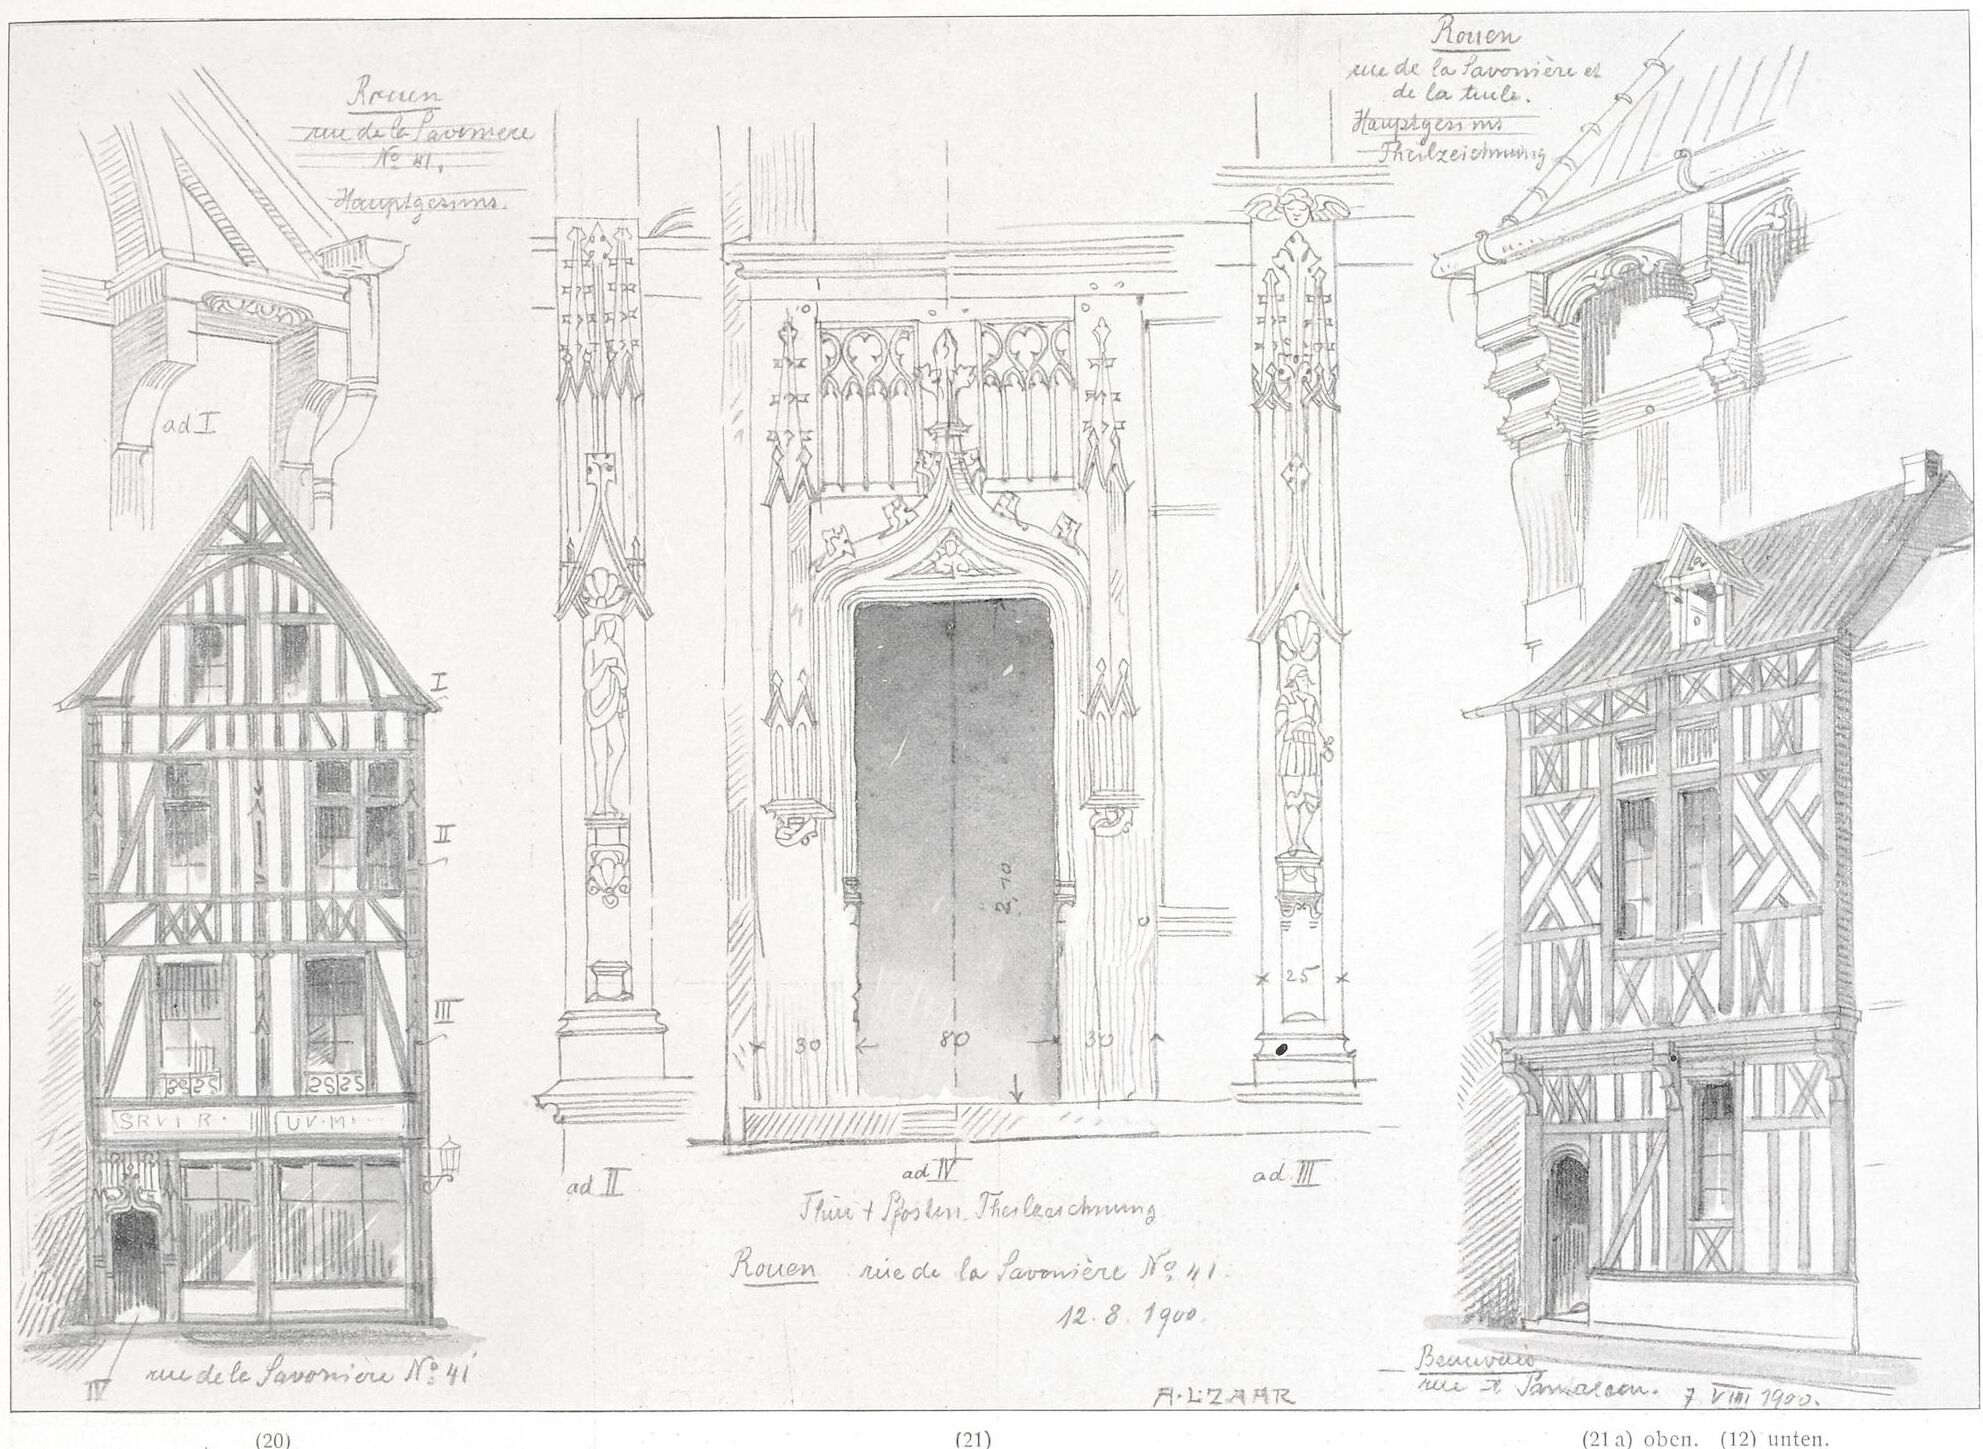 Rouen
rue de la Savonnière
No 41.
Hauptgesims.
Rouen
rue de la Savonnière et
de la tuile.
Hauptgesims
Theilzeichnung
ad I
I
II
III
2,10
25
30
80
30
SRVIR.
UV.M.
ad II
ad IV
ad III
Thüre + Pfosten. Theilzeichnung
Rouen rue de la Savonnière No 41.
12. 8. 1900.
rue de la Savonnière No 41
IV
A. L. ZAAR
Beauvais
rue
7. VIII 1900.
(20)
(21)
(21 a) oben. (12) unten.